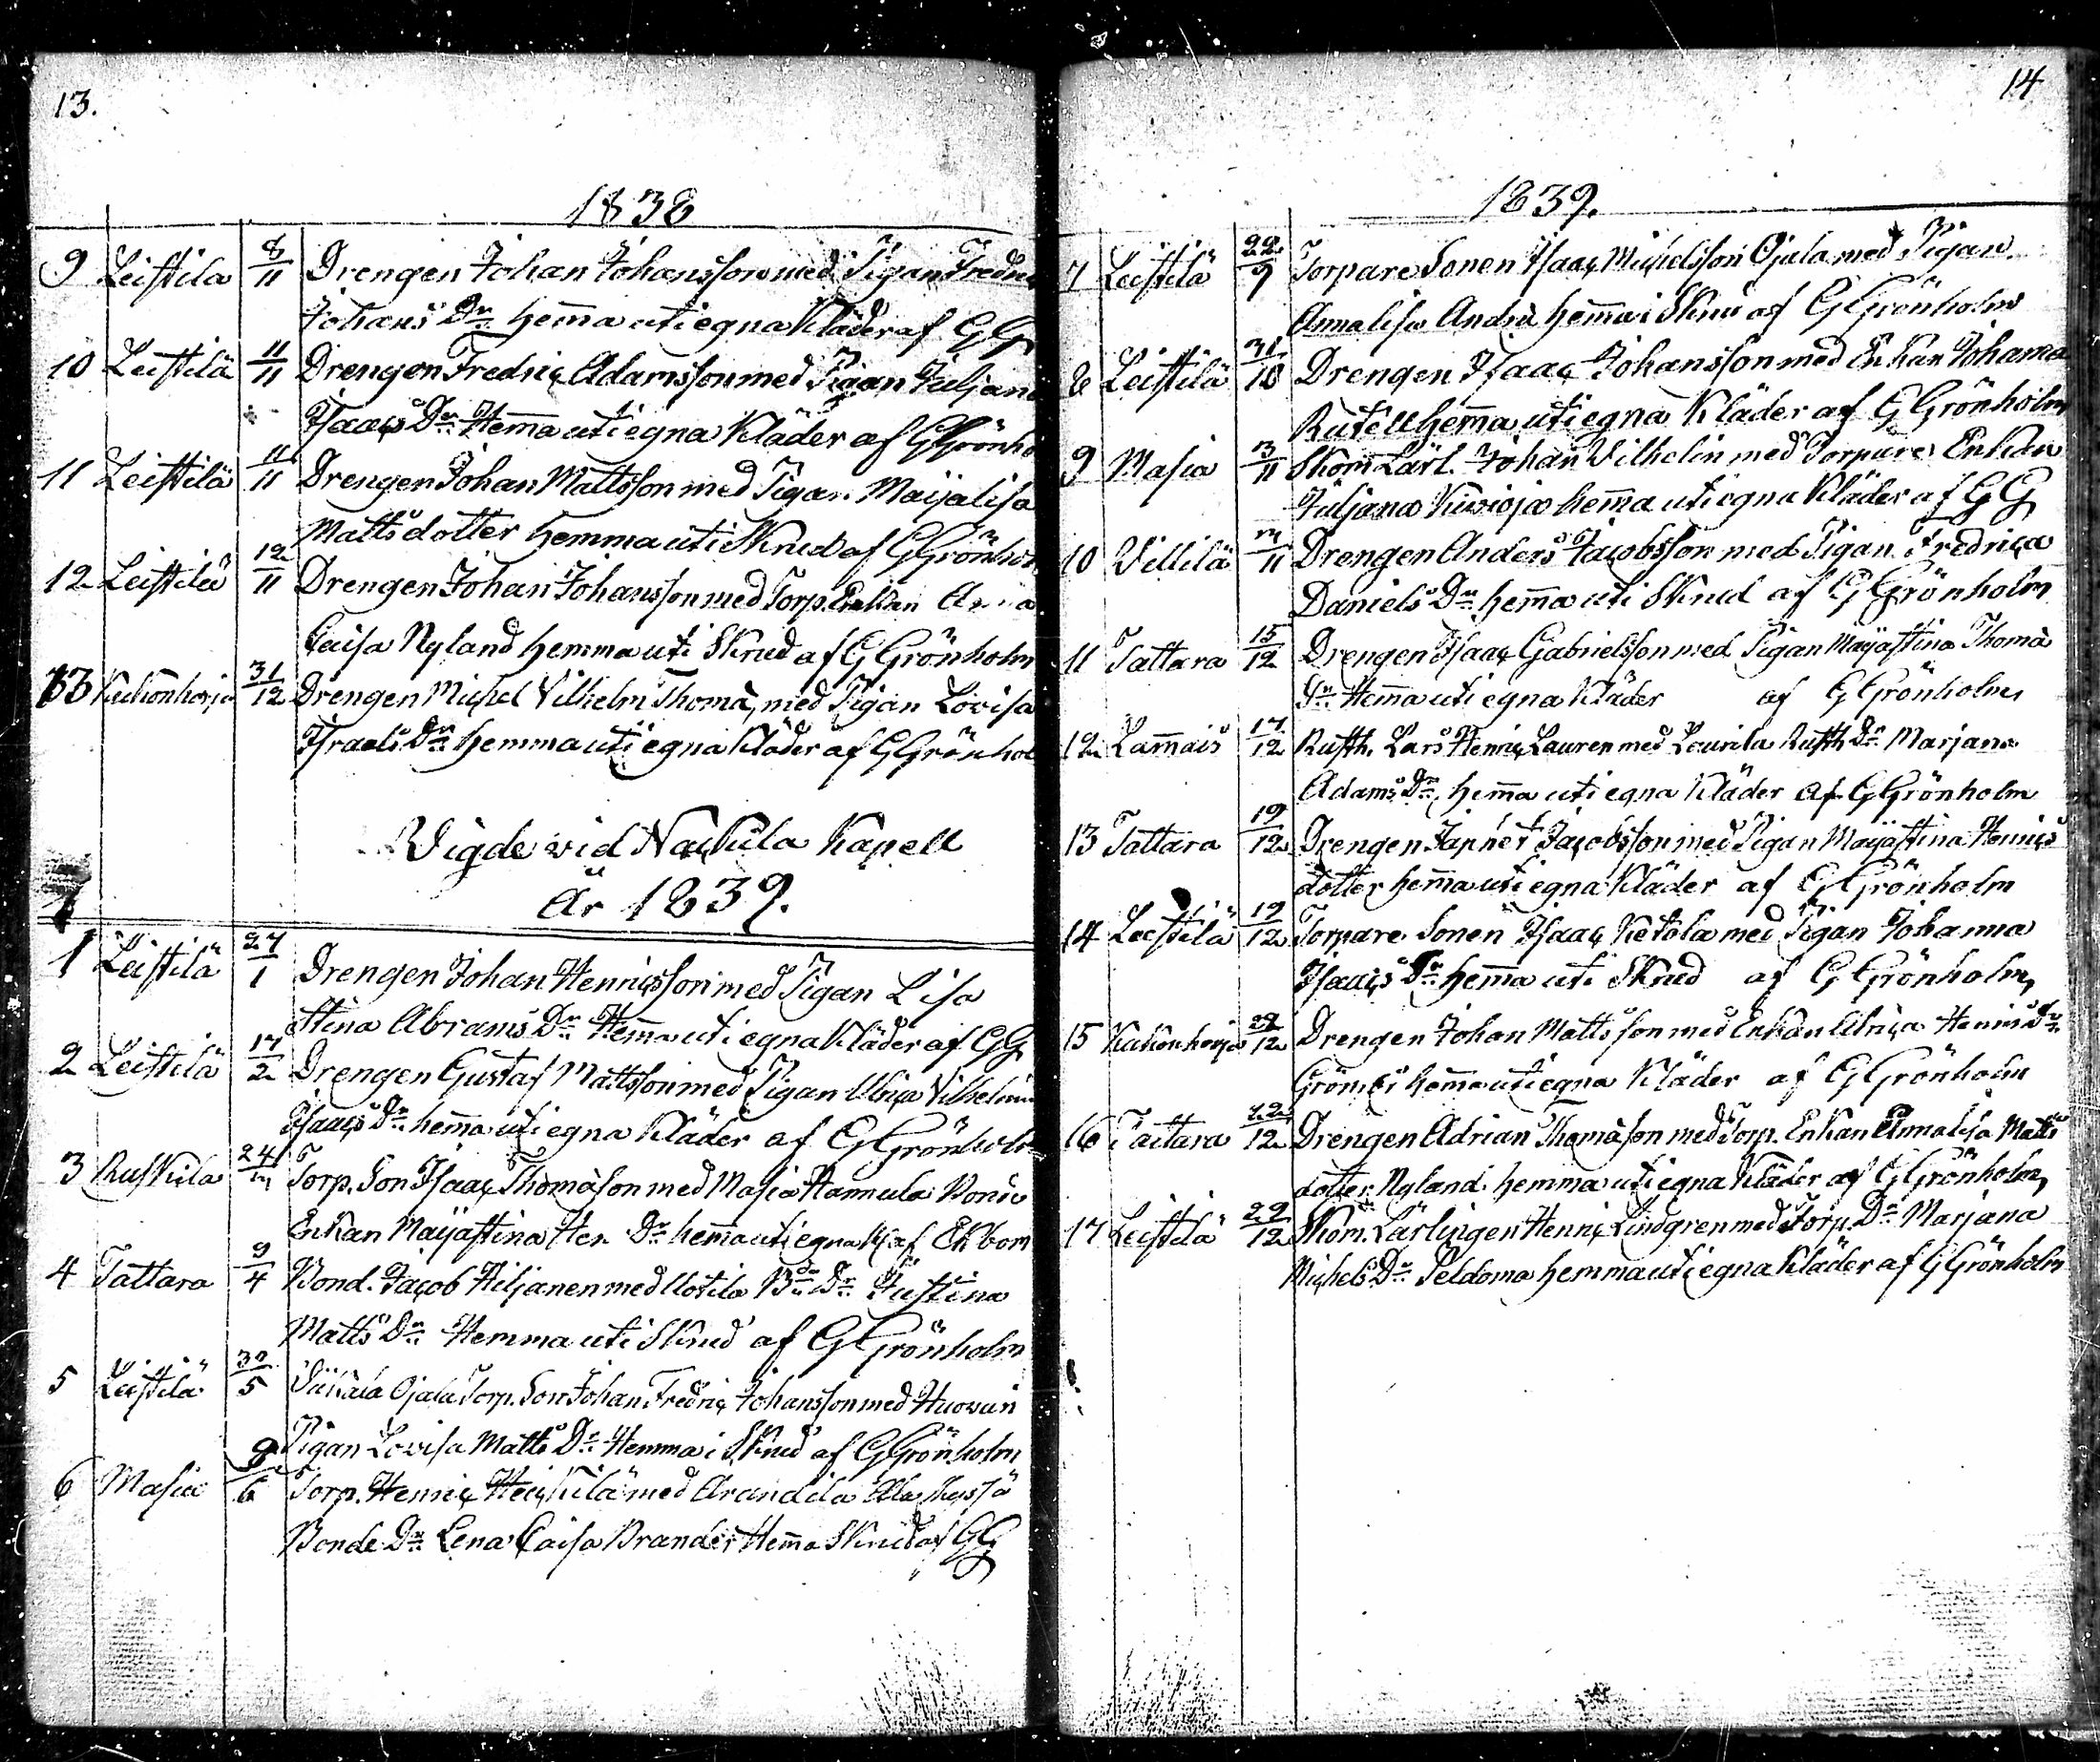 13.
1838
9 Leistila 8/11 Drengen Johan Johansson med Pigan Fredrica
Johans Dr. hem̄a uti egna Kläder af GG
10 Leistilä 11/11 Drengen Fredric Adamsson med Pigan Juljana
Isaacs Dr. Hem̄a uti egna Kläder af GGrönho
11 Leistilä 11/11 Drengen Johan Mattsson med Pigan Maijalisa
Mattsdotter hemma uti Skrud af GGrönhol
12 Leistilä 12/11 Drengen Johan Johansson med Torp. Enkan Anna
Caisa Nyland hemma uti Skrud af GGrönholm
13 Kukonharja 31/12 Drengen Michel Vilhelm Thomà, med Pigan Lovisa
Israels Dr. hemma uti egna Kläder af GGrönhol
Vigde vid Nackila Kapell
År 1839.
1 Leistilä 27/1 Drengen Johan Henricsson med Pigan Lisa
Stina Abrams Dr. Hem̄a uti egna Kläder af GG
2 Leistilä 17/2 Drengen Gustaf Mattsson med Pigan Ulrica Vilhelmin
Isaacs Dr. hem̄a uti egna Kläder af GGrönholm
3 Ruskila 24/3 Torp. Son Isaac Thomàson med Masia Hannula Bonde
Enkan Maijastina Hen. Dr. hem̄a uti egna Kl af Ekbom
4 Tattara 9/4 Bond. Jacob Hiljanen med Uotila Bde Dr. Justina
Matts Dr. Hemma uti Skrud af GGrönholm
5 Leistilä 30/5 Viikala Ojala Torp. Son Johan Fredric Johansson med
Pigan Lovisa Matts Dr. Hemma i Skrud af GGrönholm
6 Masia 9/6 Torp. Henric Heickilä med Arandila Ala
Bonde Dr. Lena Caisa Brander Hem̄a Skrud af GG
14
1839.
7 Leistilä 22/9 Torpare Sonen Isaac Michelsson Ojala med Pigan
Annalisa Andrà hem̄a i Skrud af GGrönholm
8 Leistilä 31/10 Drengen Isaac Johansson med Enkan Johanna
Rutell hem̄a uti egna Kläder af GGrönholm
9 Masia 3/11 Skom̄. Lärl. Johan Vilhelm med Torpare Enkan
Juljana Kivioja hem̄a uti egna Kläder af GG
10 Villilä 3/11 Drengen Anders Jacobsson med Pigan Fredrica
Daniels Dr. hem̄a uti Skrud af GGrönholm
11 Tattara 15/12 Drengen Isaac Gabrielsson med Pigan Maijastina Thomà
Dr. Hem̄a uti egna Kläder af GGrönholm
12 Lam̄ais 17/12 Rusth. Lars Henric Lauren med Laurila Rusth. Dr. Marjana
Adams Dr. hem̄a uti egna Kläder af GGrönholm
13 Tattara 19/12 Drengen Japhet Jacobsson med Pigan Maijastina Henrics
dotter hem̄a uti egna Kläder af GGrönholm
14 Leistilä 19/12 Torpare Sonen Isaac Ketola med Pigan Johanna
Isaacs Dr. hem̄a uti Skrud af GGrönholm
15 Kukonharja 22/12 Drengen Johan Mattsson med Enkan Ulrica Henrics Dr.
hem̄a uti egna Kläder af GGrönholm
16 Tattara 22/12 Drengen Adrian Thomàson med Torp. Enkan Annalisa Matts
dotter Nyland. hemma uti egna Kläder af GGrönholm
17 Leistilä 29/12 Skom̄. Lärlingen Henric Lindgren med Torp. Dr. Marjana
Michels Dr. Peldoma hemma uti egna Kläder af GGrönholm